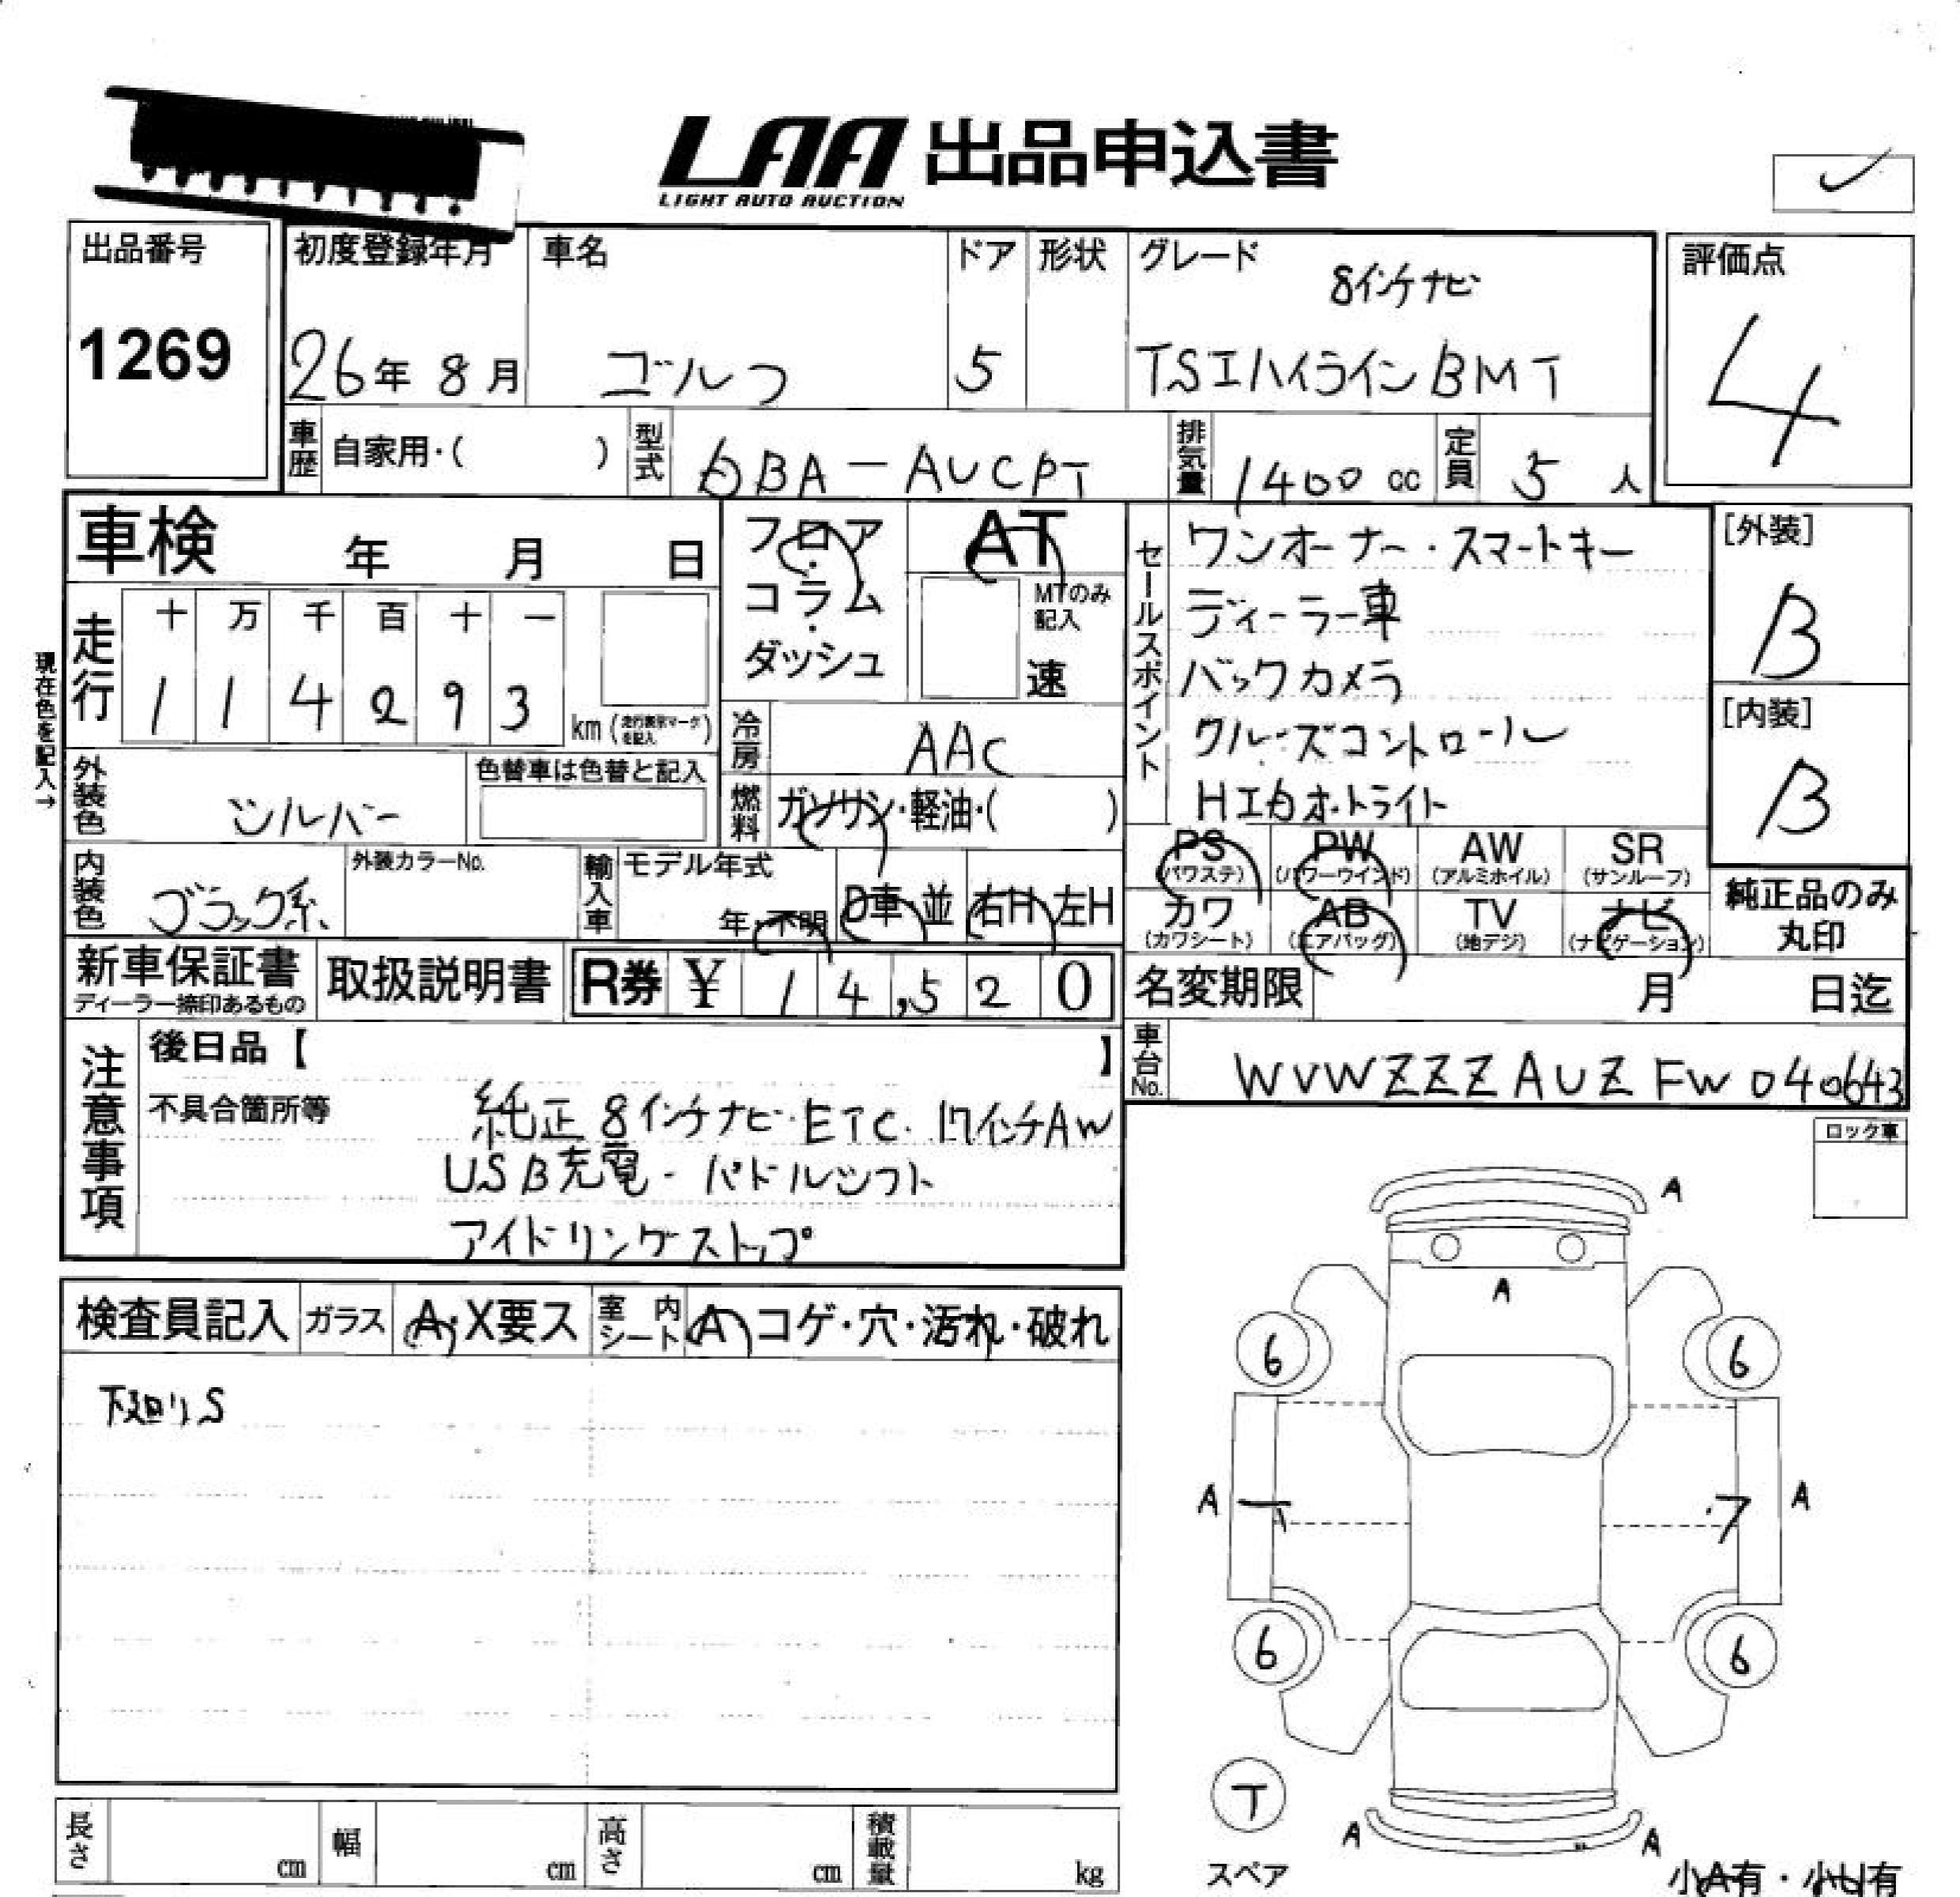 LAA 出品申込書
LIGHT AUTO AUCTION
出品番号
1269
初度登録年月
26年 8月
車名
ゴルフ
ドア
5
形状
グレード
8インチナビ
TSIハイラインBMT
評価点
4
車歴
自家用・( )
型式
DBA-AUCPT
排気量
1400 cc
定員
5 人
車検 年 月 日
フロア・コラム・ダッシュ
AT
MTのみ記入
速
セールスポイント
ワンオーナー・スマートキー
ディーラー車
バックカメラ
クルーズコントロール
HIDオートライト
[外装]
B
[内装]
B
現在色を記入→
走行
十 万 千 百 十 一
1 1 4 2 9 3
km (走行表示マークを記入)
冷房
AAC
外装色
シルバー
色替車は色替と記入
燃料
ガソリン・軽油・( )
内装色
ブラック系
外装カラーNo.
輸入車
モデル年式
年・不明
D車・並
右H・左H
PS (パワステ)
PW (パワーウインド)
AW (アルミホイル)
SR (サンルーフ)
カワ (カワシート)
AB (エアバッグ)
TV (地デジ)
ナビ (ナビゲーション)
純正品のみ丸印
新車保証書
ディーラー捺印あるもの
取扱説明書
R券 ¥ 14,520
名変期限 月 日迄
車台No.
WVWZZZAUZFW040643
注意事項
後日品【 】
不具合箇所等
純正8インチナビ・ETC・17インチAW
USB充電・パドルシフト
アイドリングストップ
ロック車
検査員記入
ガラス
A・X要ス
室内シート
A コゲ・穴・汚れ・破れ
下廻りS
A
A
6 6
A A
6 6
T
スペア
A A
小A有・小U有
長さ cm
幅 cm
高さ cm
積載量 kg